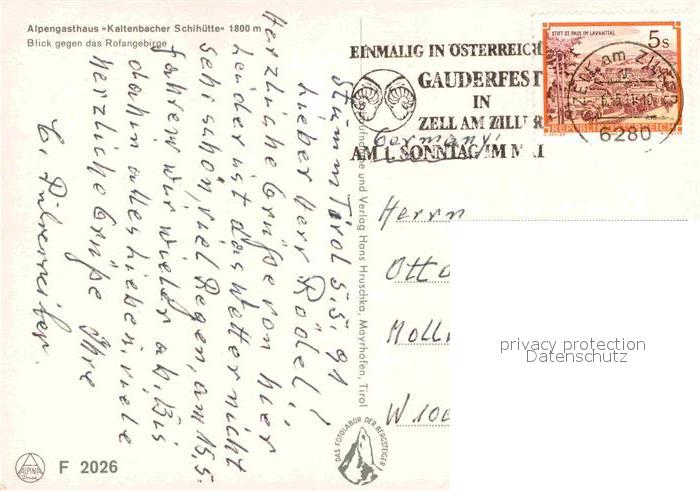 Alpengasthaus »Kaltenbacher Schihütte« 1800 m
Blick gegen das Rofangebirge
Stumm Tirol 5.5.91
Lieber Herr Rödel!
Herzliche Grüße von hier
Leider ist das Wetter nicht
sehr schön, viel Regen, am 15.5.
fahren wir wieder ab. Bis
dahin alles Liebe u. viele
herzliche Grüße Ihre
EINMALIG IN ÖSTERREICH
GAUDERFEST
IN
ZELL AM ZILLER
AM 1. SONNTAG IM MAI
STIFT ST. PAUL IM LAVANTTAL
5s
REPUBLIK ÖSTERREICH
ZELL am ZILLER
6280
Germany
Herrn
Otto
W 100
und Verlag Hans Hruschka, Mayrhofen, Tirol
DAS FOTOLABOR DER BERGSTEIGER
privacy protection
Datenschutz
ALPINA
F 2026